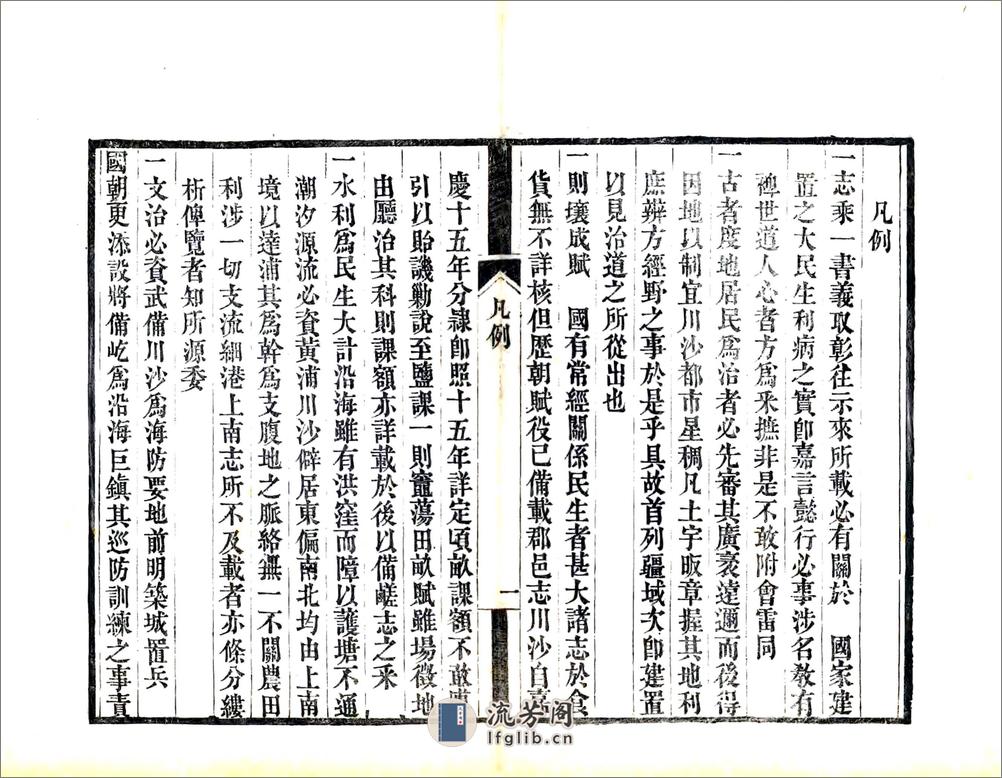 凡例
一志乘一書義取彰往示來所載必有關於　國家建
置之大民生利病之實卽嘉言懿行必事涉名敎有
裨世道人心者方爲釆摭非是不敢附會雷同
一古者度地居民爲治者必先審其廣袤遠邇而後得
因地以制宜川沙都市星稠凡土宇昄章握其地利
庶辨方經野之事於是乎具故首列疆域次卽建置
以見治道之所從出也
一則壤成賦　國有常經關係民生者甚大諸志於食
貨無不詳核但歷朝賦役已備載郡邑志川沙自嘉
凡例
一
慶十五年分隸卽照十五年詳定頃畝課額不敢
引以貽譏勦說至鹽課一則竈蕩田畝賦雖場徵地
由廳治其科則課額亦詳載於後以備鹺志之釆
一水利爲民生大計沿海雖有洪窪而障以護塘不通
潮汐源流必資黃浦川沙僻居東偏南北均由上南
境以達浦其爲幹爲支腹地之脈絡無一不關農田
利涉一切支流細港上南志所不及載者亦條分縷
析俾覽者知所源委
一文治必資武備川沙爲海防要地前明築城置兵
國朝更添設將備屹爲沿海巨鎮其巡防訓練之事責
流芳阁
lfglib.cn